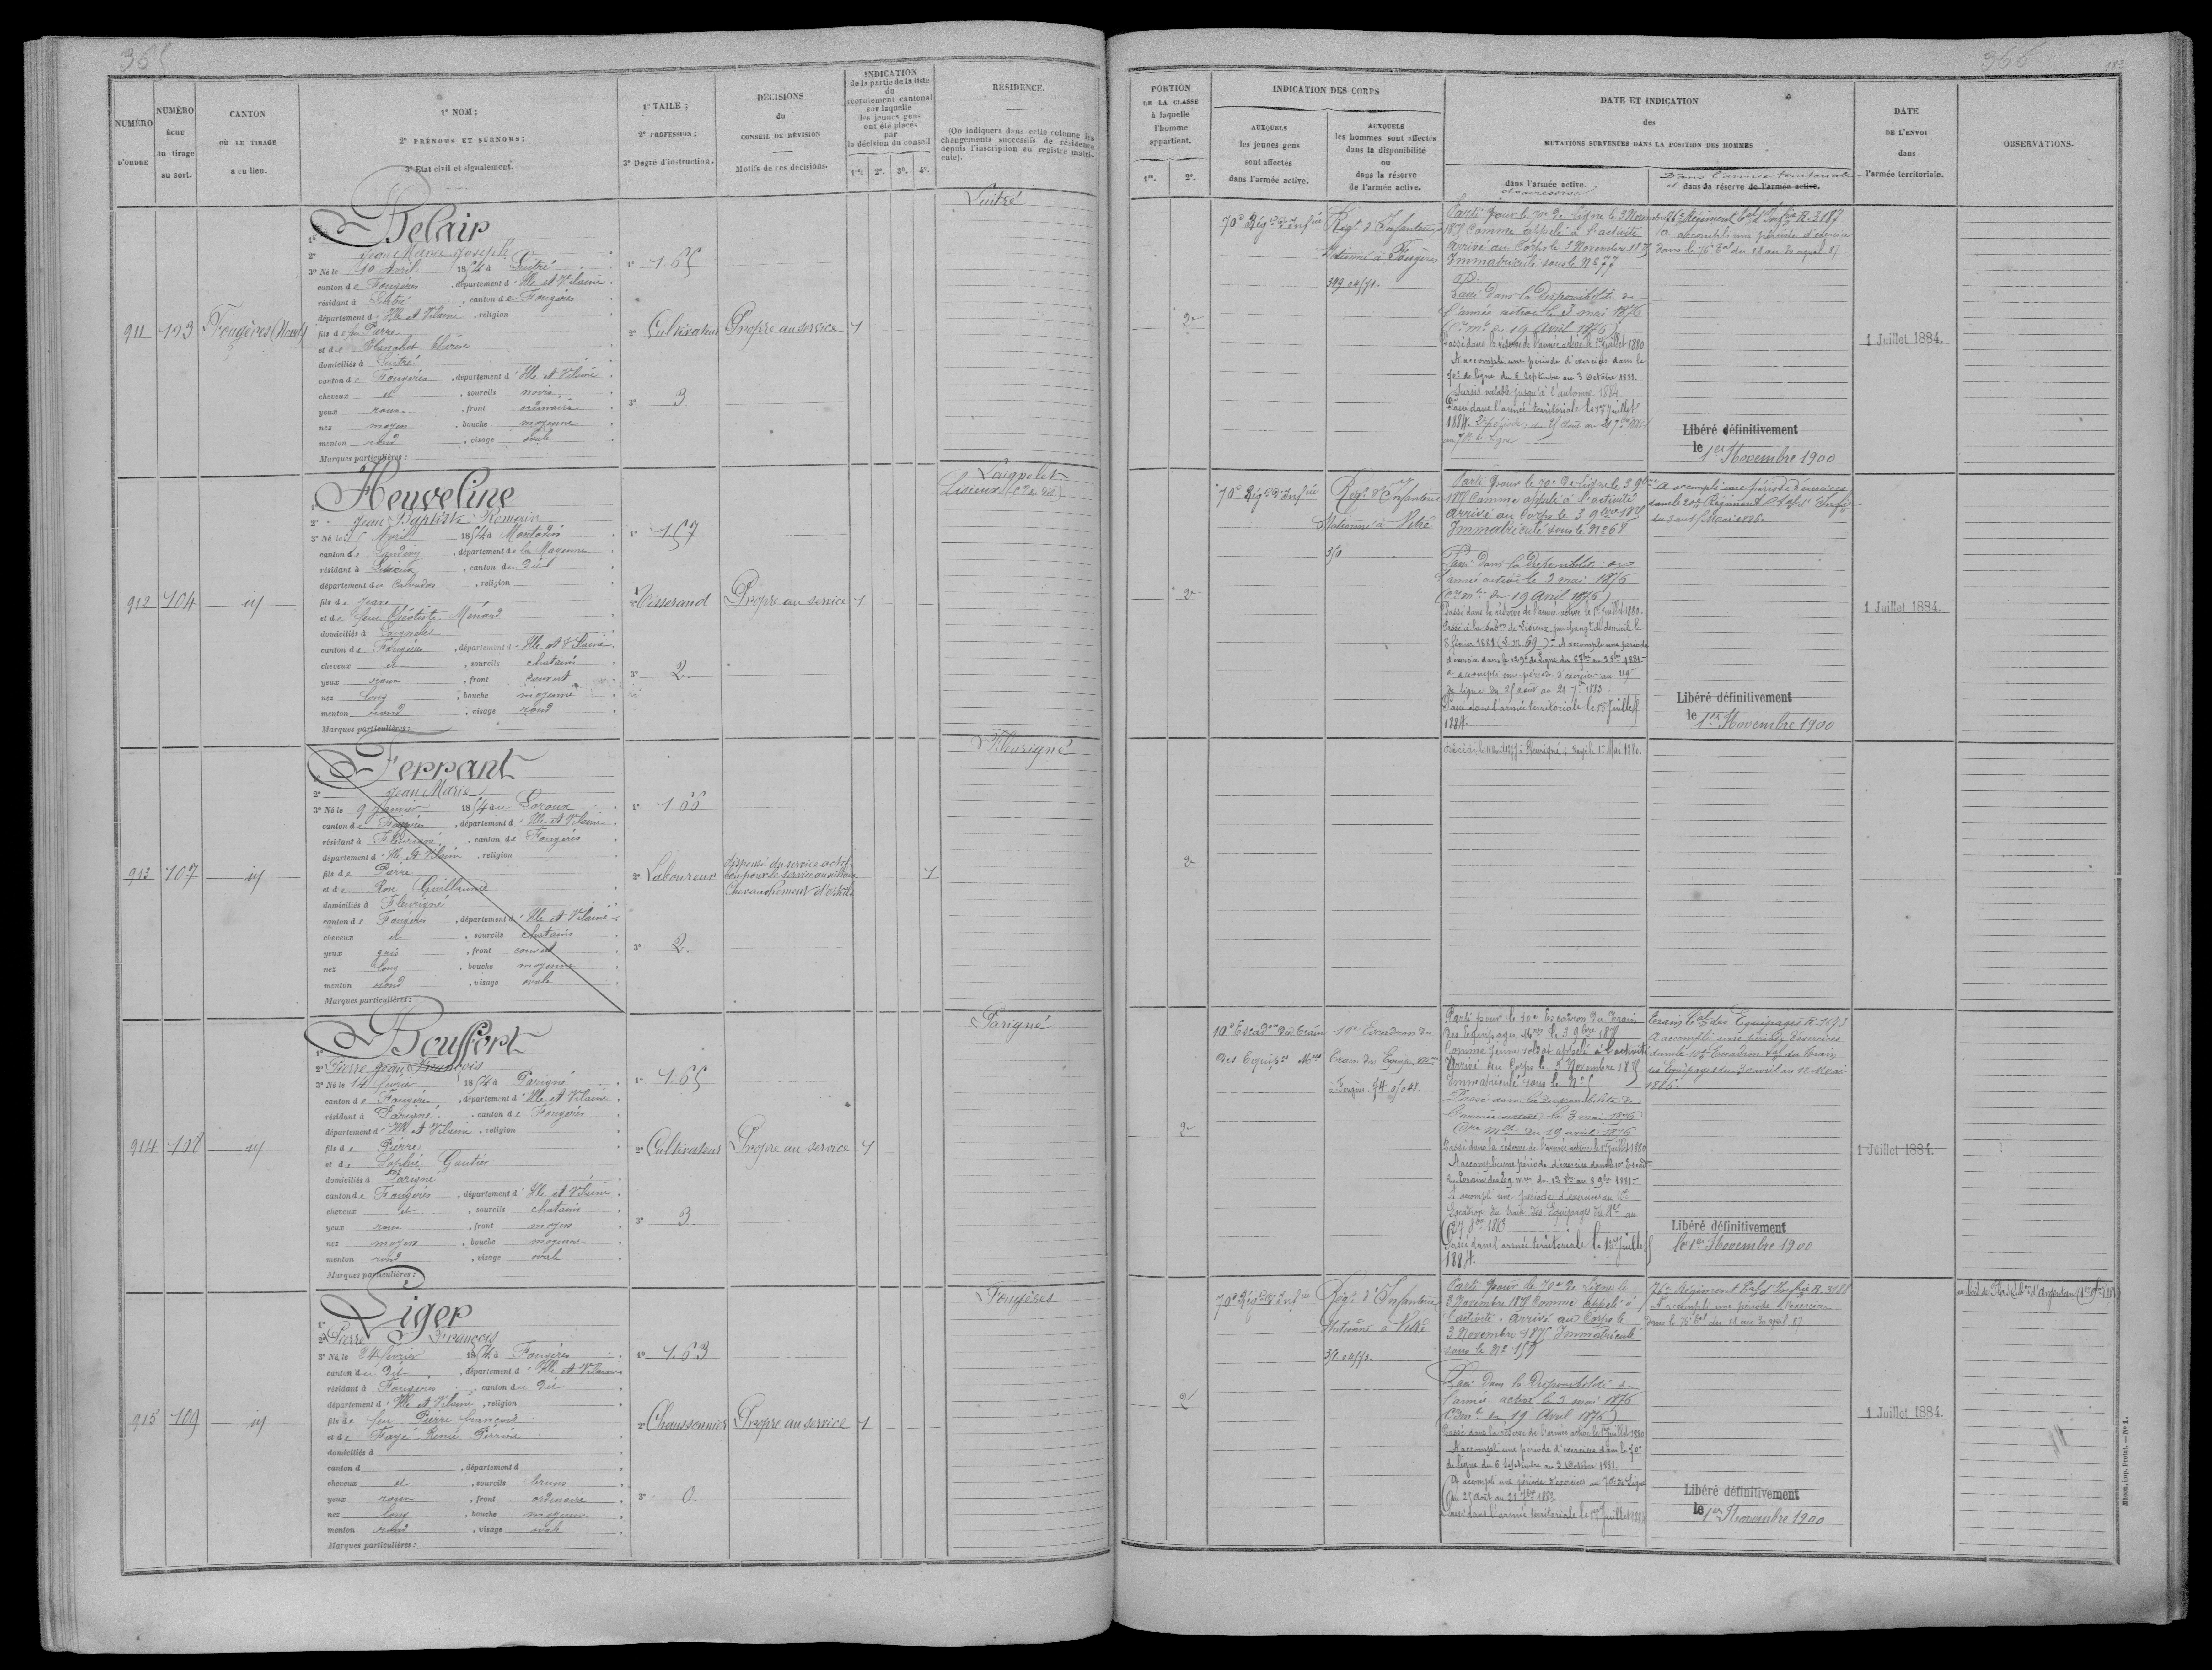 365
NUMÉRO D'ORDRE
NUMÉRO échu au tirage au sort.
CANTON OÙ LE TIRAGE a eu lieu.
1º NOM ;
2º PRÉNOMS ET SURNOMS ;
3º Etat civil et signalement.
1º TAILE ;
2º PROFESSION ;
3º Degré d'instruction.
DÉCISIONS
du
CONSEIL DE RÉVISION
Motifs de ces décisions.
INDICATION
de la partie de la liste
du
recrutement cantonal
sur laquelle
les jeunes gens
ont été placés
par
la décision du conseil
1re. 2e. 3e. 4e.
RÉSIDENCE.
(On indiquera dans cette colonne les
changements successifs de résidence
depuis l'inscription au registre matri-
cule).
911
103
Fougères (Nord)
1º Belair
2º Jean Marie Joseph
3º Né le 10 Avril 1854 à Luitré
canton de Fougères, département d'Ille et Vilaine
résidant à Luitré, canton de Fougères
département d'Ille et Vilaine, religion
fils de feu Pierre
et de Blanchet Thérèse
domiciliés à Luitré
canton de Fougères, département d'Ille et Vilaine
cheveux et, sourcils noirs
yeux roux, front ordinaire
nez moyen, bouche moyenne
menton rond, visage ovale
Marques particulières :
1º 1.65
2º Cultivateur
3º 3
Propre au service
1
Luitré
912
104
id
1º Heuveline
2º Jean Baptiste Romain
3º Né le Avril 1854 à Montaudin
canton de Landivy, département de la Mayenne
résidant à Lisieux, canton du dit
département du Calvados, religion
fils de Jean
et de feue Théotiste Ménard
domiciliés à
canton de Fougères, département d'Ille et Vilaine
cheveux et, sourcils chatains
yeux roux, front couvert
nez long, bouche moyenne
menton rond, visage rond
Marques particulières :
1º 1.57
2º Tisserand
3º 2
Propre au service
1
Laignelet
Lisieux (Cn du dit)
913
107
id
1º Ferrant
2º Jean Marie
3º Né le 9 Janvier 1854 au Loroux
canton de Fougères, département d'Ille et Vilaine
résidant à Fleurigné, canton de Fougères
département d'Ille et Vilaine, religion
fils de Pierre
et de Rose Guillaume
domiciliés à Fleurigné
canton de Fougères, département d'Ille et Vilaine
cheveux et, sourcils chatains
yeux gris, front couvert
nez long, bouche moyenne
menton rond, visage ovale
Marques particulières :
1º 1.66
2º Laboureur
3º 2
dispensé du service actif
bon pour le service auxiliaire
Chevauchement d'orteils
1
Fleurigné
914
108
id
1º Bouffort
2º Pierre Jean François
3º Né le 14 février 1854 à Parigné
canton de Fougères, département d'Ille et Vilaine
résidant à Parigné, canton de Fougères
département d'Ille et Vilaine, religion
fils de Pierre
et de Sophie Gautier
domiciliés à Parigné
canton de Fougères, département d'Ille et Vilaine
cheveux et, sourcils chatains
yeux roux, front moyen
nez moyen, bouche moyenne
menton rond, visage ovale
Marques particulières :
1º 1.65
2º Cultivateur
3º 3
Propre au service
1
Parigné
915
109
id
1º Liger
2º Pierre François
3º Né le 24 février 1854 à Fougères
canton du dit, département d'Ille et Vilaine
résidant à Fougères, canton du dit
département d'Ille et Vilaine, religion
fils de feu Pierre François
et de Fayé Renée Perrine
domiciliés à
canton d, département d
cheveux et, sourcils bruns
yeux roux, front ordinaire
nez long, bouche moyenne
menton rond, visage ovale
Marques particulières :
1º 1.63
2º Chaussonnier
3º 0
Propre au service
1
Fougères
366
183
PORTION
DE LA CLASSE
à laquelle
l'homme
appartient.
1re. 2e.
INDICATION DES CORPS
AUXQUELS
les jeunes gens
sont affectés
dans l'armée active.
AUXQUELS
les hommes sont affectés
dans la disponibilité
ou
dans la réserve
de l'armée active.
DATE ET INDICATION
des
MUTATIONS SURVENUES DANS LA POSITION DES HOMMES
dans l'armée active.
Dans l'armée territoriale
et dans sa réserve de l'armée active.
DATE
DE L'ENVOI
dans
l'armée territoriale.
OBSERVATIONS.
2e
70e Régt d'Infie
Régt d'Infanterie
Stationné à Fougères
Parti pour le 70e de Ligne le 3 Novembre
1875 Comme appelé à l'activité
Arrivé au Corps le 3 Novembre 1875
Immatriculé sous le Nº 77
Passé dans la disponibilité de
l'armée active le 3 mai 1876
(Cre mlle du 19 Avril 1876)
Passé dans la réserve de l'armée active le 1er Juillet 1880
A accompli une période d'exercices dans le
70e de ligne du 6 Septembre au 3 Octobre 1881.
Sursis valable jusqu'à l'automne 1884
Passé dans l'armée territoriale le 1er Juillet
1884.
76e Régiment tal d'Infie R. 3187
A accompli une période d'exercices
dans le 76e tal du 18 au 30 april 87
Libéré définitivement
le 1er Novembre 1900
1 Juillet 1884.
2e
70e Régt d'Infie
Régt d'Infanterie
Stationné à Vitré
350
Parti pour le 70e de Ligne le 3 9bre
1875 Comme appelé à l'activité
Arrivé au Corps le 3 9bre 1875
Immatriculé sous le Nº 68
Passé dans la disponibilité de
l'armée active le 3 mai 1876
(Cre mlle du 19 Avril 1876)
Passé dans la réserve de l'armée active le 1er Juillet 1880.
Passé à la subon de Lisieux par changt de domicile le
8 février 1881 (L.m. 69) - A accompli une période
d'exercices dans le 129e de Ligne du 6 7bre au 3 8bre 1881-
a accompli une période d'exercices au 119e
de ligne du 25 août au 21 7bre 1883.
Passé dans l'armée territoriale le 1er Juillet
1884.
A accompli une période d'exercices
dans le 20e Régiment tal d'Infie
Libéré définitivement
le 1er Novembre 1900
1 Juillet 1884.
2e
Décédé le à Fleurigné. Rayé le 1er Mai 1880.
2e
10e Escadon du train
des Equipes Mres
10e Escadron du
Train des Equip. Mres
Fougères
Parti pour le 10e Escadron du Train
des Equipages Mres le 3 9bre 1875
Comme jeune soldat appelé à l'activité
Arrivé au Corps le 3 Novembre 1875
Immatriculé sous le Nº 5
Passé dans la disponibilité de
l'armée active le 3 mai 1876
Cre mlle du 19 avril 1876
Passé dans la réserve de l'armée active le 1er Juillet 1880
A accompli une période d'exercices dans le 10e Escadon
du Train des Eq. mres du 12 8bre au 8 9bre 1881-
A accompli une période d'exercices au 10e
Escadron du train des Equipages du
27 8bre 1883
Passé dans l'armée territoriale le 1er Juillet
1884.
Train tal des Equipages R. 1673
A accompli une période d'exercices
dans le 10e Escadron tal du train
des Equipages du 30 avril au 12 Mai
1886.
Libéré définitivement
le 1er Novembre 1900
1 Juillet 1884.
2e
70e Régt d'Infie
Régt d'Infanterie
Stationné à Vitré
Parti pour le 70e de Ligne le
3 Novembre 1875 Comme appelé à
l'activité. Arrivé au Corps le
3 Novembre 1875 Immatriculé
sous le Nº 159
Passé dans la disponibilité de
l'armée active le 3 mai 1876
(Cre mlle du 19 Avril 1876)
Passé dans la réserve de l'armée active le 1er Juillet 1880
A accompli une période d'exercices dans le 70e
de ligne du 6 Septembre au 3 Octobre 1881.
A accompli une période d'exercices au 70e de Ligne
du 25 août au 21 7bre 1883
Passé dans l'armée territoriale le 1er Juillet 1884
76e Régiment tal d'Infie R. 3188
A accompli une période d'exercices
dans le 76e tal du 18 au 30 april 87
Libéré définitivement
le 1er Novembre 1900
1 Juillet 1884.
Rédon, Imp. Protat. — Nº 1.